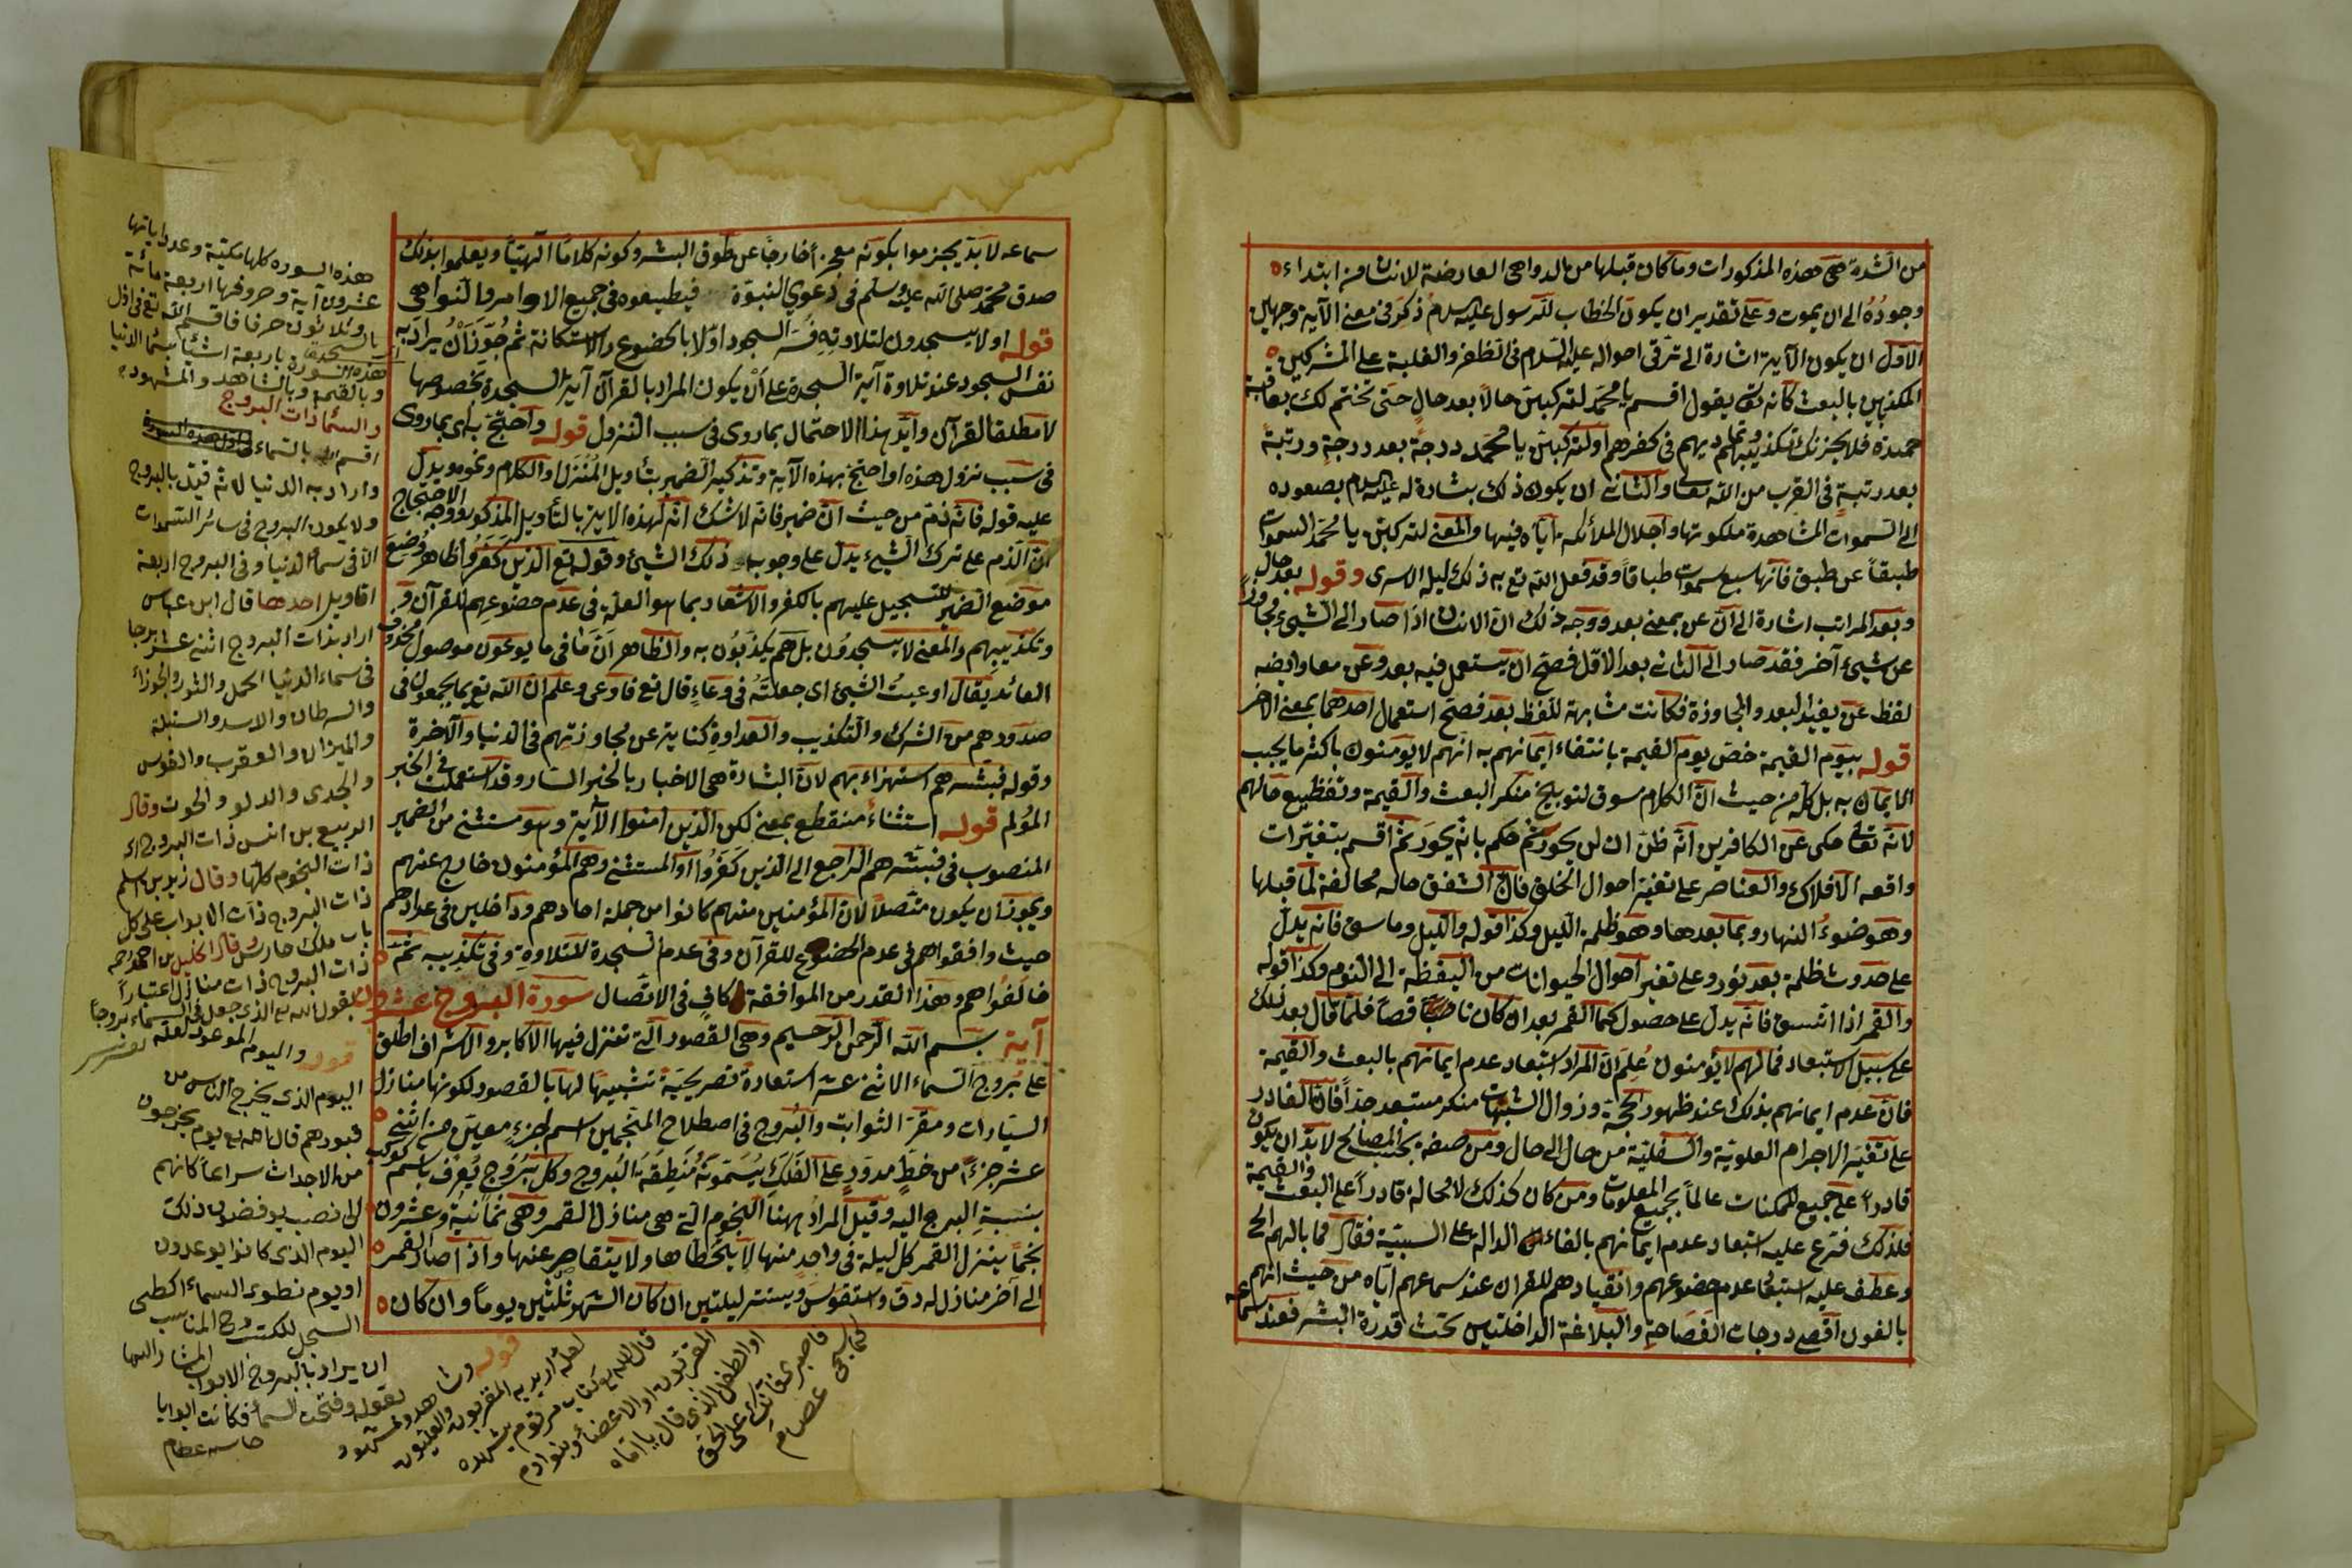 من الشدة هى هذه المذكورات وما كان قبلها من الدواهى العارضة لانسان من ابتداء
وجوده الى ان يموت وعلى تقدير ان يكون الخطاب للرسول عليه السلام ذكر فى معنى الآية وجهين
الاول ان يكون الآية اشارة الى ترقى احواله عليه السلام فى الظفر والغلبة على المشركين
المكذبين بالبعث كانه تع يقول اقسم يا محمد لتركبن حالاً بعد حالٍ حتى تختم لك بعاقبة
حميدة فلا يحزنك تكذيبهم وتماديهم فى كفرهم او لتركبن يا محمد درجةً بعد درجةٍ ورتبةً
بعد رتبةٍ فى القرب من الله تعالى والثانى ان يكون ذلك بشارة له عليه السلام بصعوده
الى السموات لمشاهدة ملكوتها واجلال الملائكة اياه فيها والمعنى لتركبن يا محمد السموات
طبقاً عن طبق فانها سبع سموات طباقاً وقد فعل الله تع به ذلك ليلة الاسرى وقوله بعد حال
وبعد المراتب اشارة الى ان عن بمعنى بعد ووجه ذلك ان الانسان اذا صار الى الشىء مجاوزاً
عن شىء آخر فقد صار الى الثانى بعد الاول فصح ان يستعمل فيه بعد وعن معا وايضه
لفظ عن يفيد البعد والمجاوزة فكانت مشابهة للفظ بعد فصح استعمال احدهما بمعنى الآخر
قوله بيوم القيمة خص يوم القيمة بانتفاء ايمانهم به انهم لا يؤمنون باكثر ما يجب
الايمان به بل كله من حيث ان الكلام سوق لتوبيخ منكر البعث والقيمة وتفظيع حالهم
لانه تعالى حكى عن الكافرين انه ظن ان لن يحور ثم حكم بانه يحور ثم اقسم بتغيرات
واقعه الافلاك والعناصر على تغير احوال الخلق فان الشفق حاله مخالفة لما قبلها
وهو ضوء النهار وبما بعدها وهو ظلمة الليل وكذا قوله والليل وما سق فانه يدل
على حدوث ظلمة بعد نور وعلى تغير احوال الحيوانات من اليقظة الى النوم وكذا قوله
والقمر اذا اتسق فانه يدل على حصول كما القمر بعد ان كان ناقصاً فلما قال بعد ذلك
على سبيل الاستبعاد فما لهم لا يؤمنون عُلِمَ ان المراد استبعاد عدم ايمانهم بالبعث والقيمة
فان عدم ايمانهم بذلك عند ظهور الحجة وزوال الشبهات منكر مستبعد جداً فان القادر
على تغيير الاجرام العلوية والسفلية من حال الى حال ومن صفة بحسب المصالح لا بد ان يكون
قادراً على جميع الممكنات عالماً بجميع المعلومات ومن كان كذلك لا محالة قادراً على البعث والقيمة
فلذلك فرع عليه استبعاد عدم ايمانهم بالفاء الدالة على السببية فقال فما بالهم الخ
وعطف عليه استبعاد عدم خضوعهم وانقيادهم للقران عند سماعهم اياه من حيث انهم
بالغون اقصى درجات الفصاحة والبلاغة الداخلتين تحت قدرة البشر فعند سماعه
سماعه لا بد يجزموا بكونه معجزاً خارجاً عن طوق البشر وكونه كلاماً الهياً ويعلموا بذلك
صدق محمد صلى الله عليه وسلم فى دعوى النبوة فيطيعوه فى جميع الاوامر والنواهى
قوله او لا يسجدون لتلاوته فسر السجود اولا بالخضوع والاستكانة ثم جوز ان يراد به
نفس السجود عند تلاوة آية السجدة على ان يكون المراد بالقرآن آية السجدة بخصوصها
لا مطلقا القرآن وايد هذا الاحتمال بما روى فى سبب النزول قوله واحتج به اى بما روى
فى سبب نزول هذه او احتج بهذه الآية وتذكير الضمير بتأويل المُنْزَل والكلام ونحوه ويدل
عليه قوله فانه ذم من حيث ان ضمير فانه لا شك انه لهذه الآية بالتأويل المذكور ووجه الاحتجاج
ان الذم على ترك الشىء يدل على وجوب ذلك الشىء وقوله تع الذين كفروا ظاهر وُضِعَ
موضع الضمير للتسجيل عليهم بالكفر والاشعار بما هو العلة فى عدم خضوعهم للقرآن و
وتكذيبهم والمعنى لا يسجدون بل هم يكذبون به والظاهر ان ما فى ما يوعون موصول محذوف
العائد يقال اوعيت الشىء اى جعلته فى وعاءٍ قال تع فاوعى وعلم ان الله تع بما يجمعون فى
صدورهم من الشرك والتكذيب والعداوة كناية عن مجاوزتهم فى الدنيا والآخرة
وقوله فبشرهم استهزاء بهم لان البشارة هى الاخبار بالخبر السار وقد استعملت فى الخبر
المؤلم قوله استثناء منقطع بمعنى لكن الذين امنوا الآية وهو مستثنى من الضمير
المنصوب فى فبشرهم الراجع الى الذين كفروا او المستثنى وهم المؤمنون خارج عنهم
ويجوز ان يكون متصلاً لان المؤمنين منهم كانوا من جملة احادهم وداخلين فى عدادهم
حيث وافقواهم فى عدم الخضوع للقرآن وفى عدم السجدة للتلاوة وفى تكذيبه ثم
خالفواهم وهذا القدر من الموافقة كافٍ فى الاتصال سورة البروج عشرون
آية بسم الله الرحمن الرحيم وهى القصور التى تنزل فيها الاكابر والاشراف اطلق
على بروج السماء الاثنى عشر استعارة تصريحية تشبيها لها بالقصور لكونها منازل
السيارات ومقر الثوابت والبروج فى اصطلاح المنجمين اسم لجزء معين من اثنى
عشر جزءً من خطٍ مدورٍ على الفلك يسمونه مُنطِقَة البُروج وكل بروج يُعرَف باسم كوكب
بنسبة البرج اليه وقيل المراد بهنا النجوم التى هى منازل القمر وهى ثمانية وعشرون
نجمًا ينزل القمر كل ليلة فى واحد منها لا يخطاها ولا يتقاصر عنها واذا صار القمر
الى آخر منازله دق واستقوس ويستتر ليلتين ان كان الشهر ثلثين يوماً وان كان
هذه السوره كلها مكية وعدد اياتها
عشرون آية وحروفها اربعمائة
وثلاثون حرفا فاقسم الله تع فى اول
هذه السورة باربعة اشياء بسماء الدنيا
وبالقيمة وبالشاهد والمشهود
والسماء ذات البروج
اقسم الله بالسماء
واراد به الدنيا لانه قيد بالبروج
ولا يكون البروج فى سائر السموات
الا فى سماء الدنيا وفى البروج اربعة
اقاويل احدها قال ابن عباس
اراد بذات البروج اثنى عشر برجا
فى سماء الدنيا الحمل والثور والجوزاء
والسرطان والاسد والسنبلة
والميزان والعقرب والقوس
والجدى والدلو والحوت وقال
الربيع بن انس ذات البروج اى
ذات النجوم كلها وقال زيد بن اسلم
ذات البروج ذات الابواب على كل
باب ملك حارس وقال الخليل بن احمد رحمه
ذات البروج ذات منازل اعتباراً
بقول الله تع الذى جعل فى السماء بروجاً
قوله واليوم الموعود لعله
اليوم الذى يخرج الناس من
قبورهم قال الله تع يوم يخرجون
من الاجداث سراعاً كانهم
الى نصب يوفضون ذلك
اليوم الذى كانوا يوعدون
او يوم نطوى السماء كطى
السجل للكتب وح المناسب
ان يراد بالبروج الابواب المشار اليها
بقوله وفتحت السماء فكانت ابوابا
قوله وشاهد ومشهود
لعله اريد به المقربون والعليون
قال الله تع كتاب مرقوم يشهده
المقربون او الاعضاء وبنو ادم
او الطفل الذى قال يا اماه
فاصبرى فانك على الحق
كما سيجىء عصام